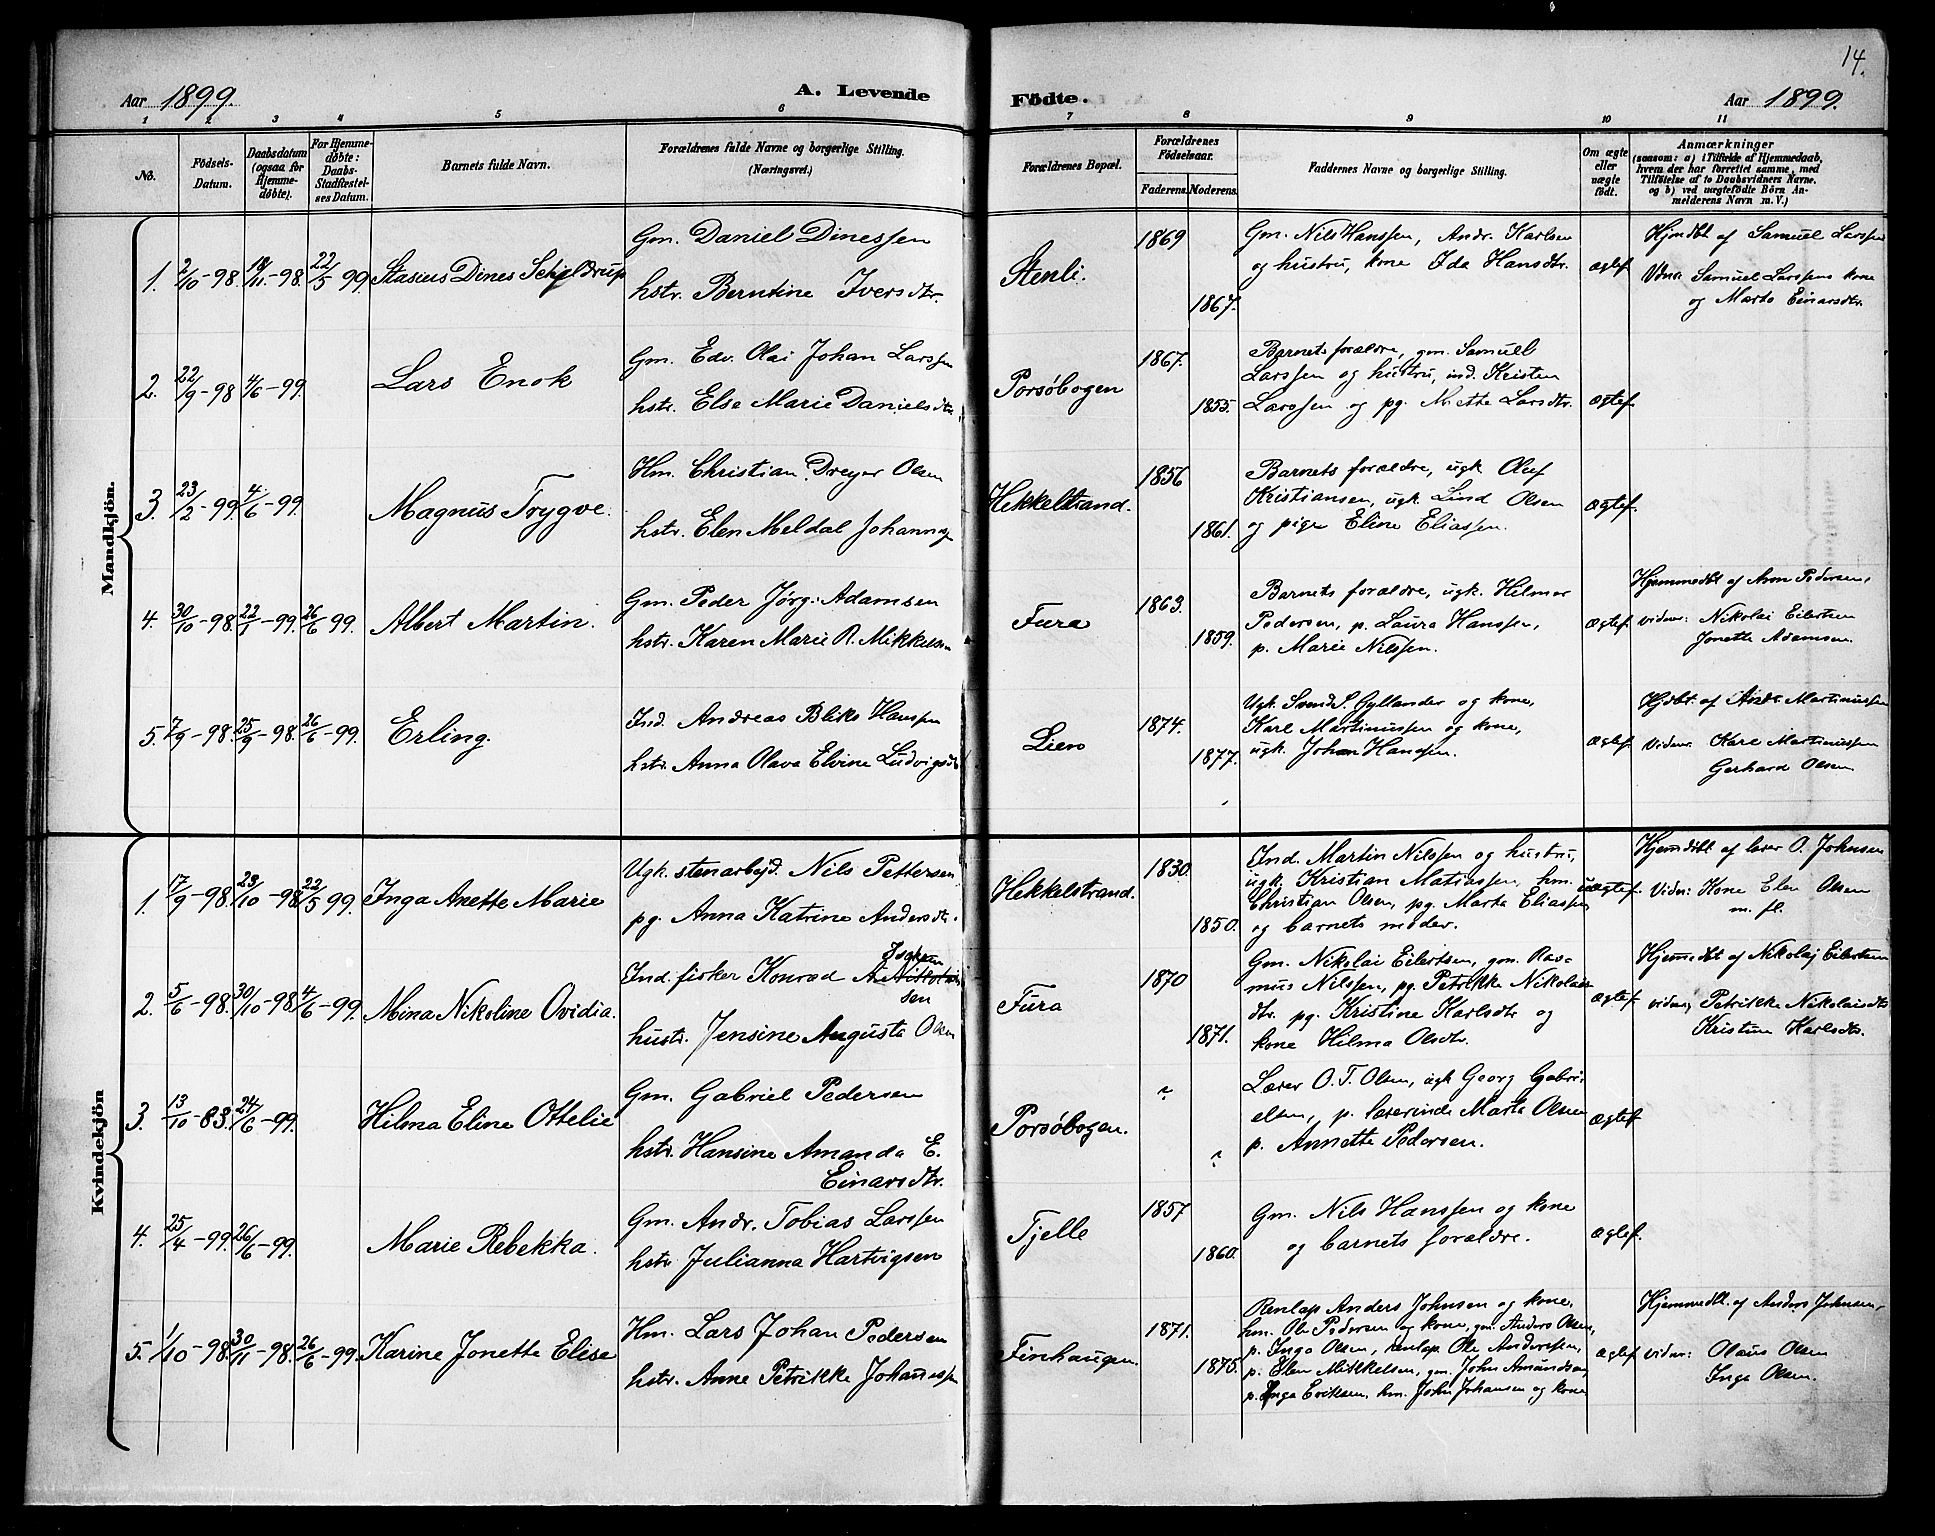 14.
Aar 1899.
A. Levende
Födte.
Aar 1899.
1 2 3 4 5 6 7 8 9 10 11
No.
Födsels-
Datum.
Daabsdatum
(ogsaa for
Hjemme-
døbte).
For Hjemme-
døbte:
Daabs-
Stadfæstel-
ses Datum.
Barnets fulde Navn.
Forældrenes fulde Navne og borgerlige Stilling.
(Næringsvei.)
Forældrenes Bopæl.
Forældrenes
Fødselsaar.
Faderens.
Moderens.
Faddernes Navne og borgerlige Stilling.
Om ægte
eller
uægte
født.
Anmærkninger
(saasom: a) i Tilfælde af Hjemmedaab,
hvem der har forrettet samme, med
Tilføielse af to Daabsvidners Navne,
og b) ved uægtefødte Börn An-
melderens Navn m. V.)
Mandkjön.
1. 2/10-98. 18/11-98. 22/5 99. Stasius Dines Schjeldrup
Gm. Daniel Dinessen
hstr. Berntine Iversdtr.
Stenli.
1869
1867.
Gm. Nils Hanssen, Andr. Karlsen
og hustru, kone Ida Hansdtr.
ægtef.
Hjmdbt af Samuel Larssen
Vdnr: Samuel Larssens kone
og Marta Einarsdtr.
2. 22/9-98 4/6-99. Lars Enok
Gm. Edv. Olai Johan Larssen
hstr. Else Marie Danielsdtr.
Porsöbogen
1867.
1855.
Barnets forældre, gm. Samuel
Larssen og hustru, ind. Kristen
Larssen og pg. Mette Larsdtr.
ægtef.
3. 23/2-99. 4/6-99. Magnus Trygve.
Hm. Christian Dreyer Olsen
hstr. Elen Meldal Johannes
Hekkelstrand.
1856
1861.
Barnets forældre, ugk. Oluf
Kristiansen, ugk. Lind Olsen
og pige Eline Eliassen.
ægtef.
4. 30/10-98. 22/1-99. 26/6 99. Albert Martin.
Gm. Peder Jörg. Adamsen
hstr. Karen Marie R. Mikkelsen
Fura
1863.
1859.
Barnets forældre, ugk. Hilmar
Pedersen, p. Laura Hanssen,
p. Marie Nilssen.
ægtef.
Hjemmedbt af Aron Pedersen,
vidner: Nikolai Eilertsen
Jonette Adamsen.
5. 7/9-98. 25/9-98. 26/6-99. Erling.
Ind. Andreas Bliks Hanssen
hstr. Anna Olava Elvine Ludvigsdtr
Lien
1874.
1877.
Ugk. Svend S. Gyllander og kone,
Karl Martinussen og kone,
ugk. Johan Hanssen.
ægtef.
Hjdbt. af Martinussen
Vidner. Karl Martinussen
Gerhard Olsen
Kvindekjön
1. 17/9-98. 23/10-98. 22/5 99. Inga Anette Marie
Ugk. stenarbejd. Nils Pettersen
pg. Anna Katrine Andersdtr.
Hekkelstrand.
1830.
1850.
Ind. Martin Nilssen og hustru,
ugk. Kristian Matiassen, hm.
Christian Olsen, pg. Marta Eliassen
og barnets moder.
uægtef.
Hjemdöbt af lærer O. Johnsen
Vidnr: Kone Elen Olsen
m. fl.
2. 5/6-98. 30/10-98. 4/6-99. Mina Nikoline Ovidia.
Isaksen
Ind. fisker Konrad
sen
hustr. Jensine Augusta Olsen
Fura
1870
1871.
Gm. Nikolai Eilertsen, gm. Ras-
mus Nilssen, pg. Petrikke Nikolais
dtr. pg. Kristine Karlsdtr og
kone Hilma Olsdtr.
ægtef.
Hjemmedbt af Nikolaj Eilertsen
vidner, Petrikke Nikolaisdtr
Kristine Karlsdtr.
3. 13/10-83. 24/6-99. Hilma Eline Ottelie
Gm. Gabriel Pedersen
hstr. Hansine Amanda E.
Einarsdtr.
Porsöbogen.
?
?
Lærer O. T. Olsen, ugk Georg Gabri-
elsen, p. lærerinde Marta Olsen
p. Annette Pedersen.
ægtef
4. 25/4-99. 26/6-99. Marie Rebekka.
Gm. Andr. Tobias Larssen
hstr. Julianna Hartvigsen
Tjelle
1857
1860.
Gm. Nils Hanssen og kone
og barnets forældre.
ægtef.
5. 1/10-98. 30/11-98. 26/6-99. Karine Jonette Elise
Hm. Lars Johan Pedersen
hstr. Anne Petrikke Johannessen
Finhaugen
1871.
1875.
Renlap Anders Johnsen og kone,
hm. Ole Pedersen og kone, gm. Anders Olsen,
p. Inga Olsen, renlap Ole Anderssen,
p. Elen Mikkelsen, gm. John Amundsen,
p. Inga Eriksen, hm. John Johansen og kone
ægtef
Hjemmedbt. af Anders Johnsen,
vidner: Olaus Olsen
Inga Olsen.